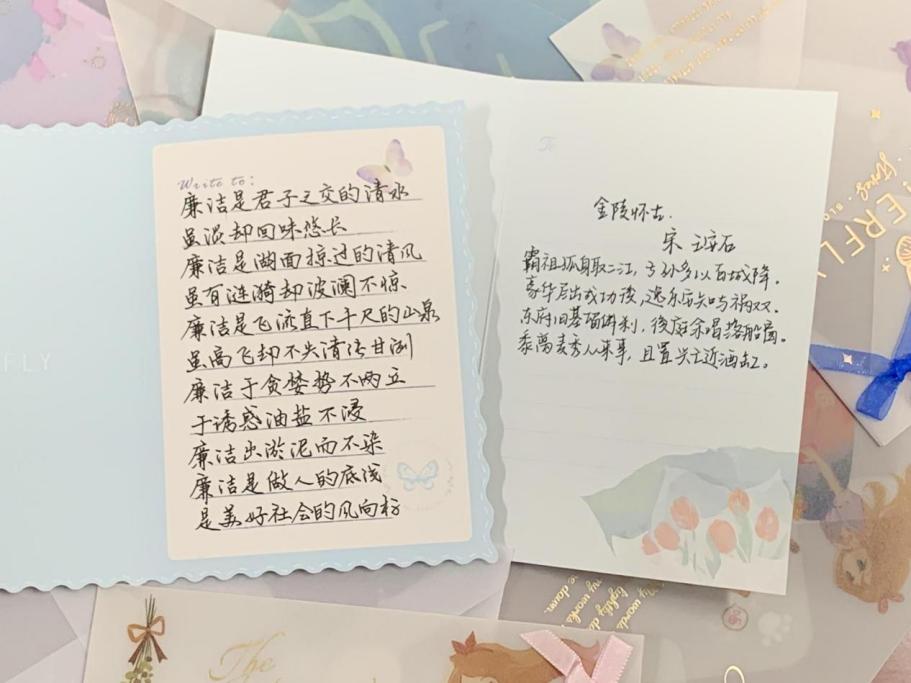 Write to:
廉洁是君子之交的清水
虽淡却回味悠长
廉洁是湖面掠过的清风
虽有涟漪却波澜不惊
廉洁是飞流直下千尺的山泉
虽高飞却不失清洁甘洌
廉洁于贪婪势不两立
于诱惑油盐不浸
廉洁出淤泥而不染
廉洁是做人的底线
是美好社会的风向标
To
金陵怀古.
宋 王安石
霸祖孤身取二江，子孙多以百城降。
豪华尽出成功后，逸乐安知与祸双。
东府旧基留佛刹，後庭余唱落船窗。
黍离麦秀从来事，且置兴亡近酒缸。
FLY
ERFLY
The